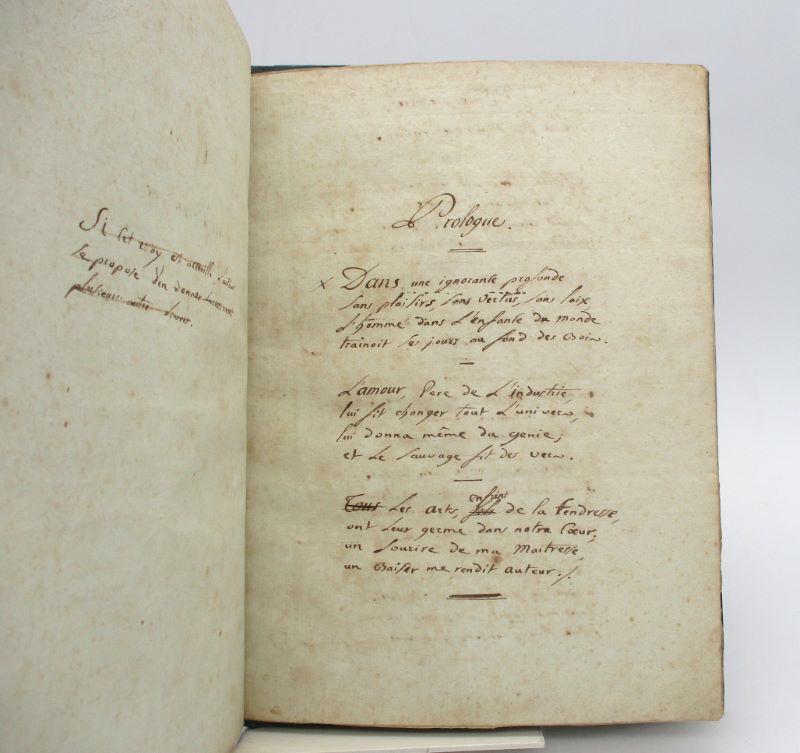 Si cet
Se propose d'en donner
plusieurs autres
Prologue.
x Dans une ignorante profonde
sans plaisirs, sans vertus, sans loix,
L'homme dans L'enfance du monde
trainoit ses jours au fond des bois.
L'amour, Pere de L'industrie,
lui fit changer tout L'univers,
lui donna même du genie;
et Le Sauvage fit des vers.
enfans
Tous Les arts, fils de la tendresse,
ont leur germe dans notre Cœur,
un sourire de ma Maitresse,
un baiser me rendit auteur./.